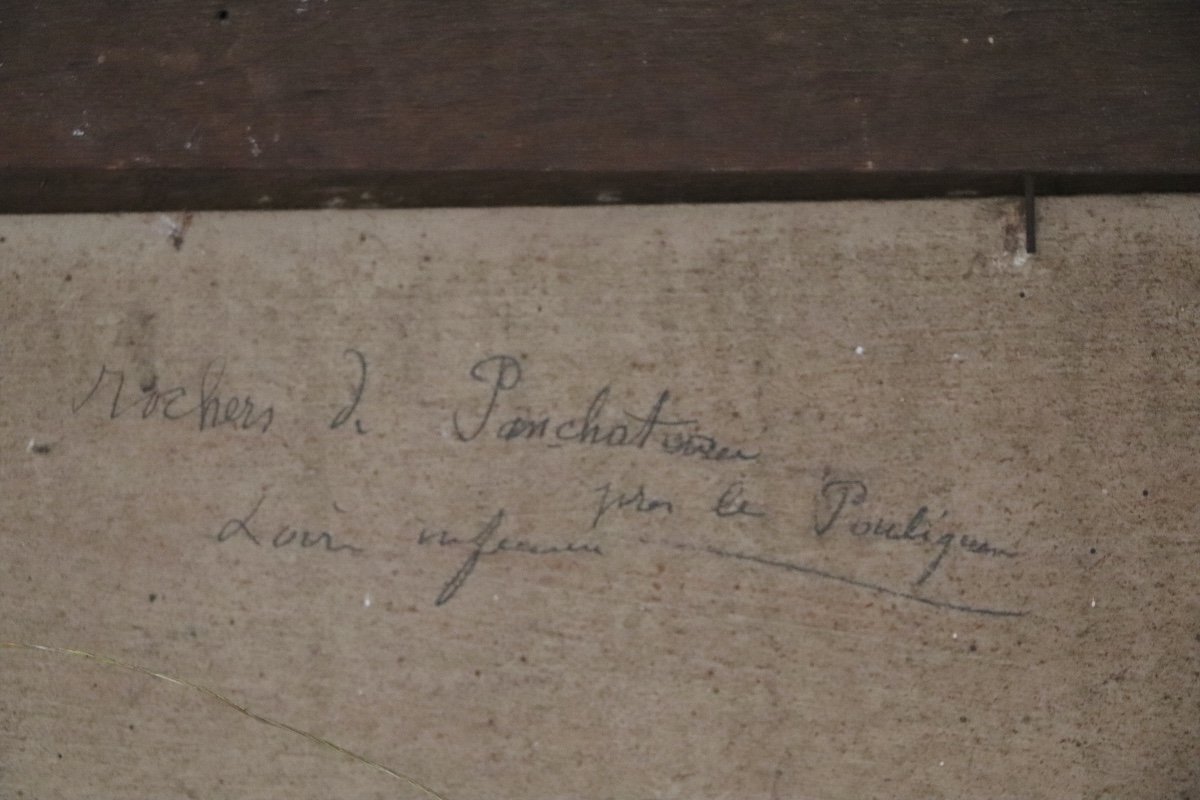 Rochers de Panchateau
près le Pouliguen
Loire inférieure